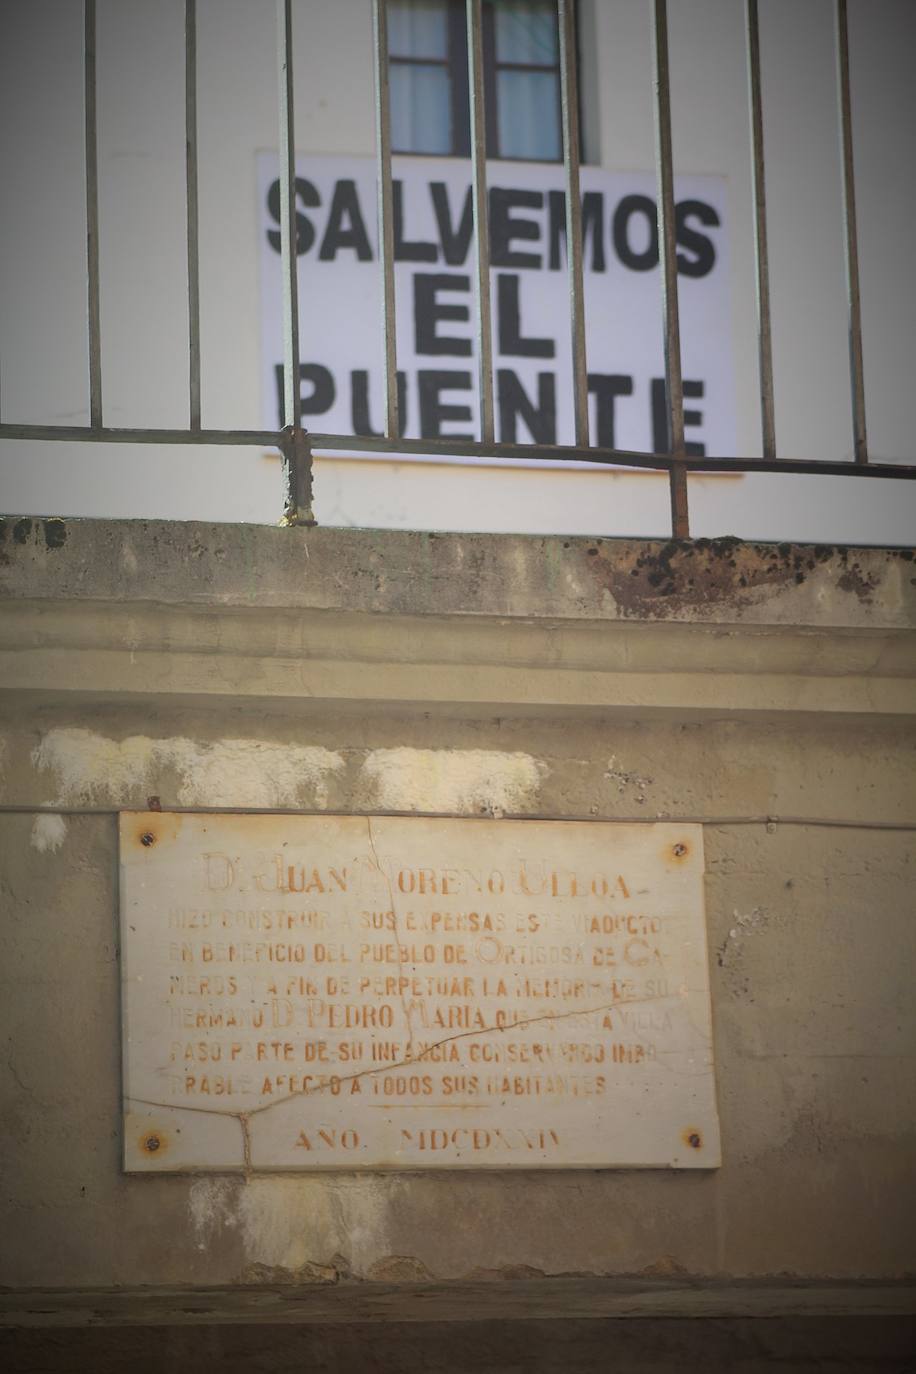 SALVEMOS
EL
PUENTE
D. JUAN MORENO ULLOA
HIZO CONSTRUIR A SUS EXPENSAS ESTE VIADUCTO
EN BENEFICIO DEL PUEBLO DE ORTIGOSA DE CA-
MEROS Y A FIN DE PERPETUAR LA MEMORIA DE SU
HERMANO D. PEDRO MARIA QUE EN ESTA VILLA
PASO PARTE DE SU INFANCIA CONSERVANDO IMBO-
RRABLE AFECTO A TODOS SUS HABITANTES
AÑO. MDCDXXIV